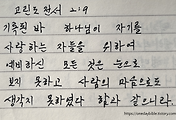 고린도전서 2:9
기록된 바 하나님이 자기를
사랑하는 자들을 위하여
예비하신 모든 것은 눈으로
보지 못하고 사람의 마음으로도
생각지 못하였다 함과 같으니라.
https://onedaybible.tistory.com